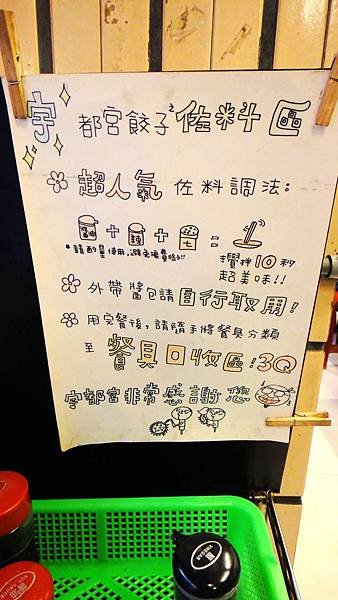 宇都宮餃子佐料區
超人氣佐料調法:
醬油 + 辣 + 七 =
*請酌量使用,避免浪費唷!!
攪拌10秒
超美味!!
外帶醬包請自行取用!
用完餐後,請隨手將餐具分類
至餐具回收區!3Q
宇都宮非常感謝您
VINEGAR
HOT SAUCE